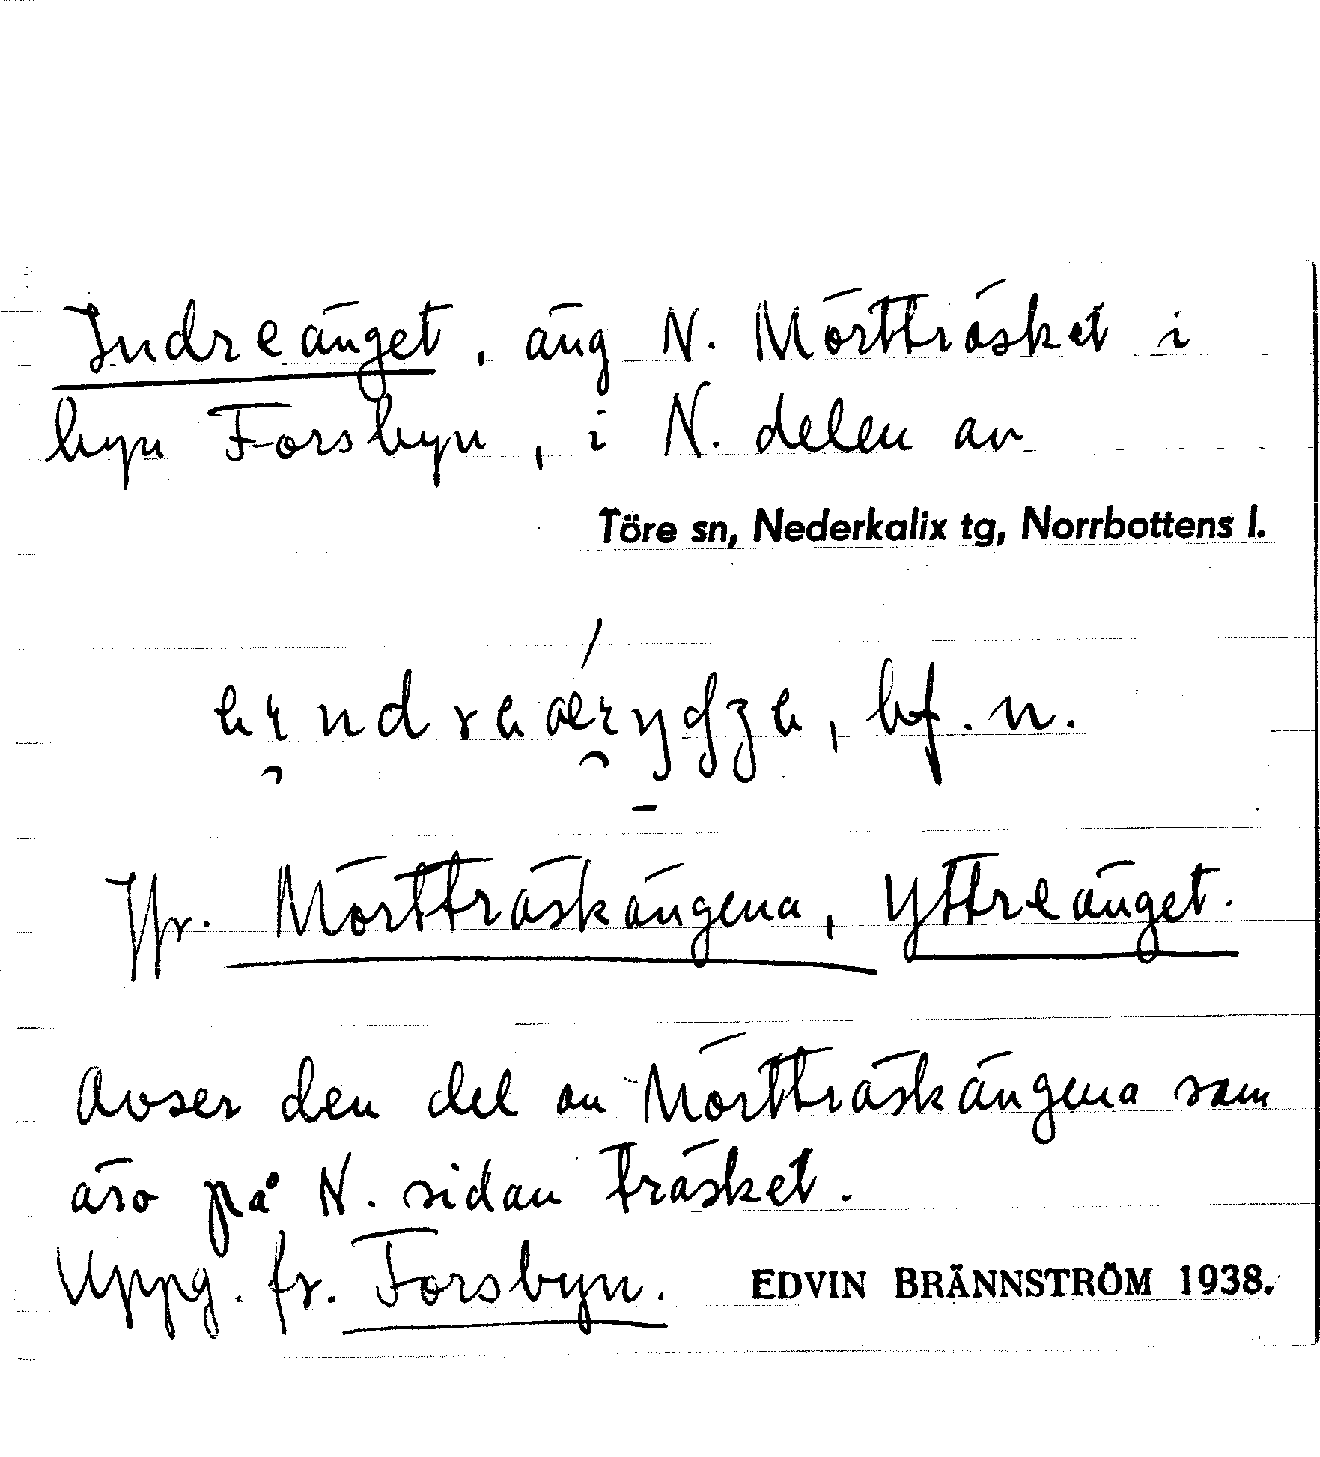 Indreänget, äng N. Mörtträsket i
byn Forsbyn, i N. delen av
Töre sn, Nederkalix tg, Norrbottens l.
bf. n.
Jfr. Mörtträskängena, Yttreänget.
Avser den del av Mörtträskängena som
äro på N. sidan träsket.
Uppg. fr. Forsbyn. EDVIN BRÄNNSTRÖM 1938.